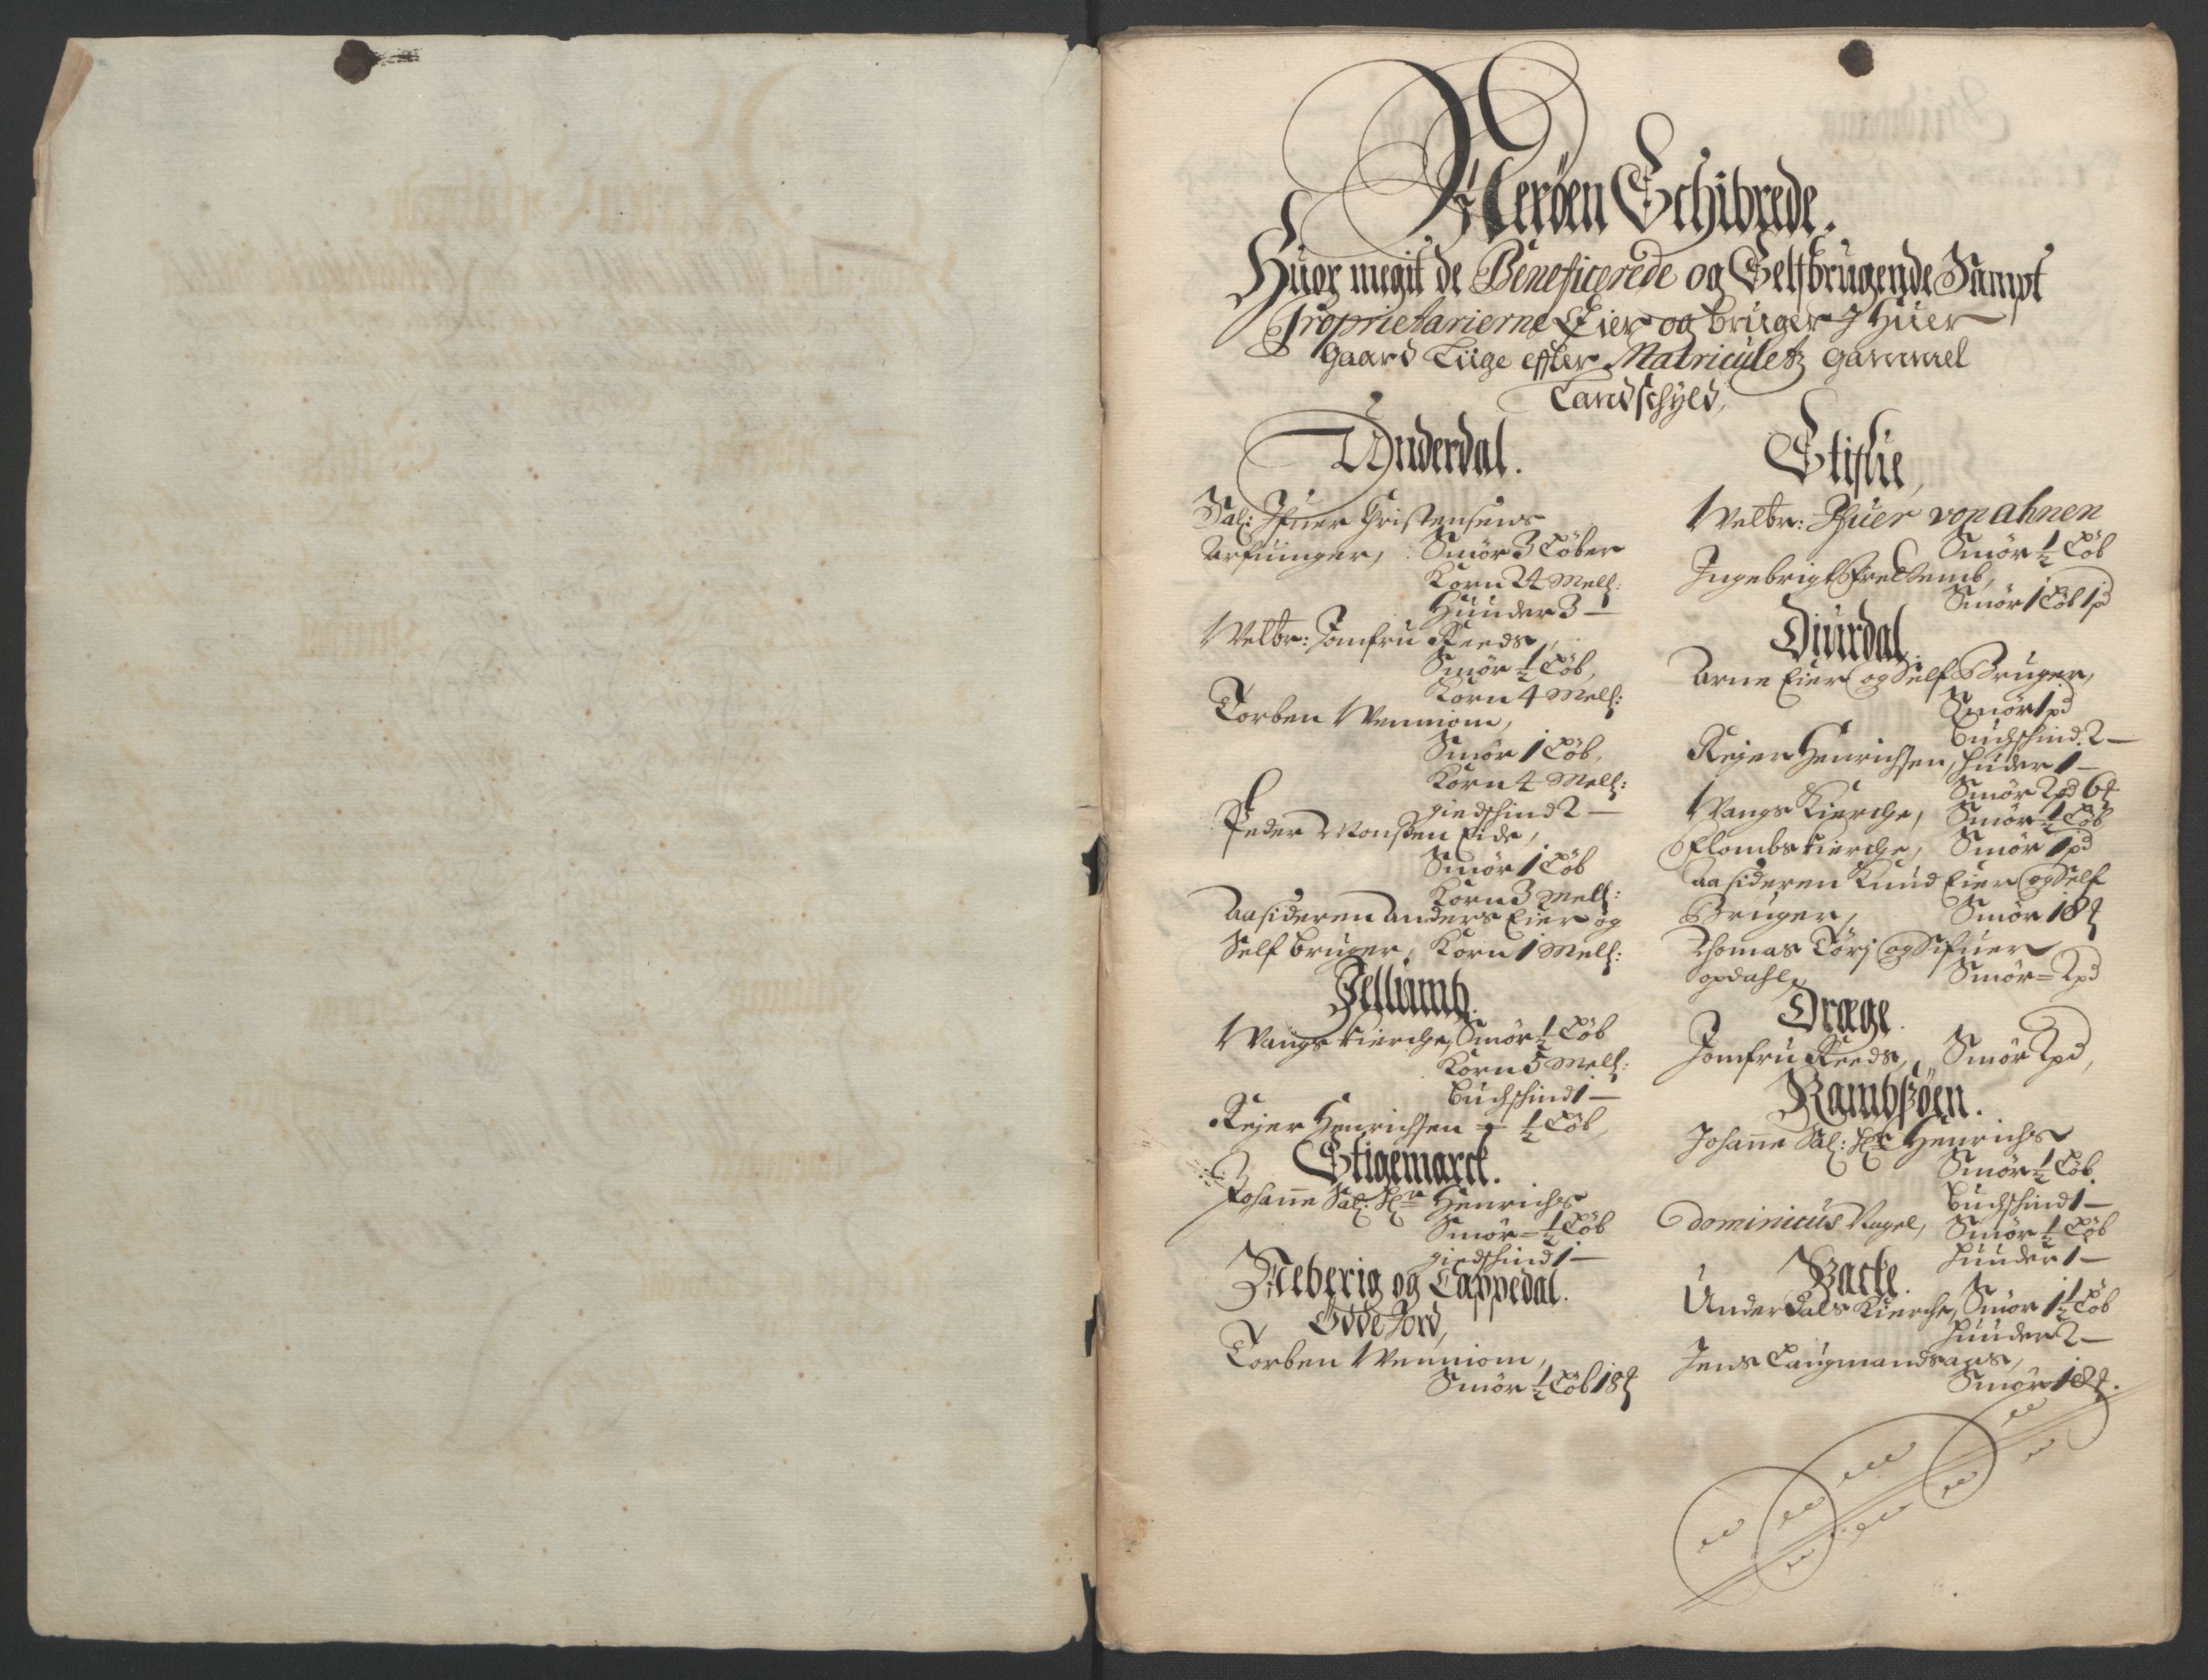 Nerøen Schibrede.
Huor megit de Beneficerede og Selfbrugende Sampt
Proprietarierne Eier og bruger J Huer
Gaard Liige effter Matriculetz gammel
Landschyld,
Underdal.
Sal: Ifuer Christensens
Arfuinger, Smör 3 Löber
Korn 24 Mell:
Huuder 3 —
Welbr: Jomfru Reeds,
Smör ½ Löb,
Korn 4 Mell:
Torben Wenniom,
Smör 1 Löb,
Korn 4 Mell:
giedschind 2 —
Peder Monssen Eide,
Smör 1 Löb
Korn 3 Mell:
Aasideren Anders Eier og
Self bruger, Korn 1 Mell:
Jellumb.
Wangs Kierche, Smör ½ Löb
Korn 5 Mell:
Buchschind 1 —
Rejer Henrichsen = ½ Löb,
Stigemarck.
Johanne Sal: Hr Henrichs
Smör = ½ Löb
giedschind 1 —
Neberig og Cappedal.
Ödde Jord,
Torben Wenniom,
Smör ½ Löb 18
Stiflie,
Welbr: Ifuer von Ahnen
Smör ½ Löb
Ingebrigt Fretemb,
Smör 1 Löb 1 pd
Diurdal.
Arne Eier og Self Bruger,
Smör 1 pd
Buchschind 2 —
Rejer Henrichsen, Huder 1 —
Smör 2 pd 6
Wangs Kierche, Smör ½ Löb
Flombs Kierche, Smör 1 pd
Aasideren Knud Eier og Self
Bruger, Smör 18
Thomas Törj og Sifuer
Opdahl, Smör = 2 pd
Dræge.
Jomfru Reeds, Smör 2 pd,
Rambsöen.
Johanne Sal: Hr Henrichs
Smör ½ Löb
Buchschind 1 —
Dominicus Nagel, Smör ½ Löb
Huuder 1 —
Backe.
Underdals Kierche, Smör 1 ½ Löb
Huuder 2 —
Jens Laugmandsaas,
Smör 18.